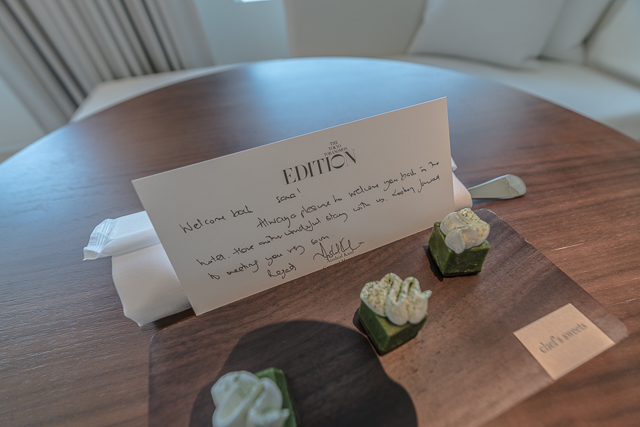 THE
TOKYO
TORANOMON
EDITION
Welcome back sama!
Always pleasure to welcome you back in the
hotel. Have another wonderful stay with us. Looking forward
to meeting you very soon
Regard
chef's sweets